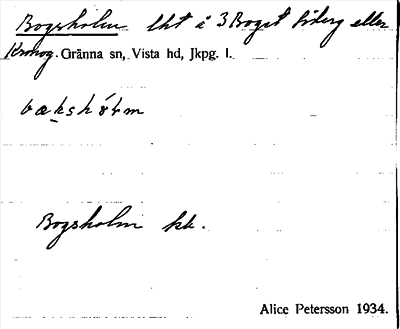 Bogsholm lht i 3 Boget Liberg eller
Kronog. Gränna sn, Vista hd, Jkpg. l.
bo̲kshólm
Bogsholm kk.
Alice Petersson 1934.